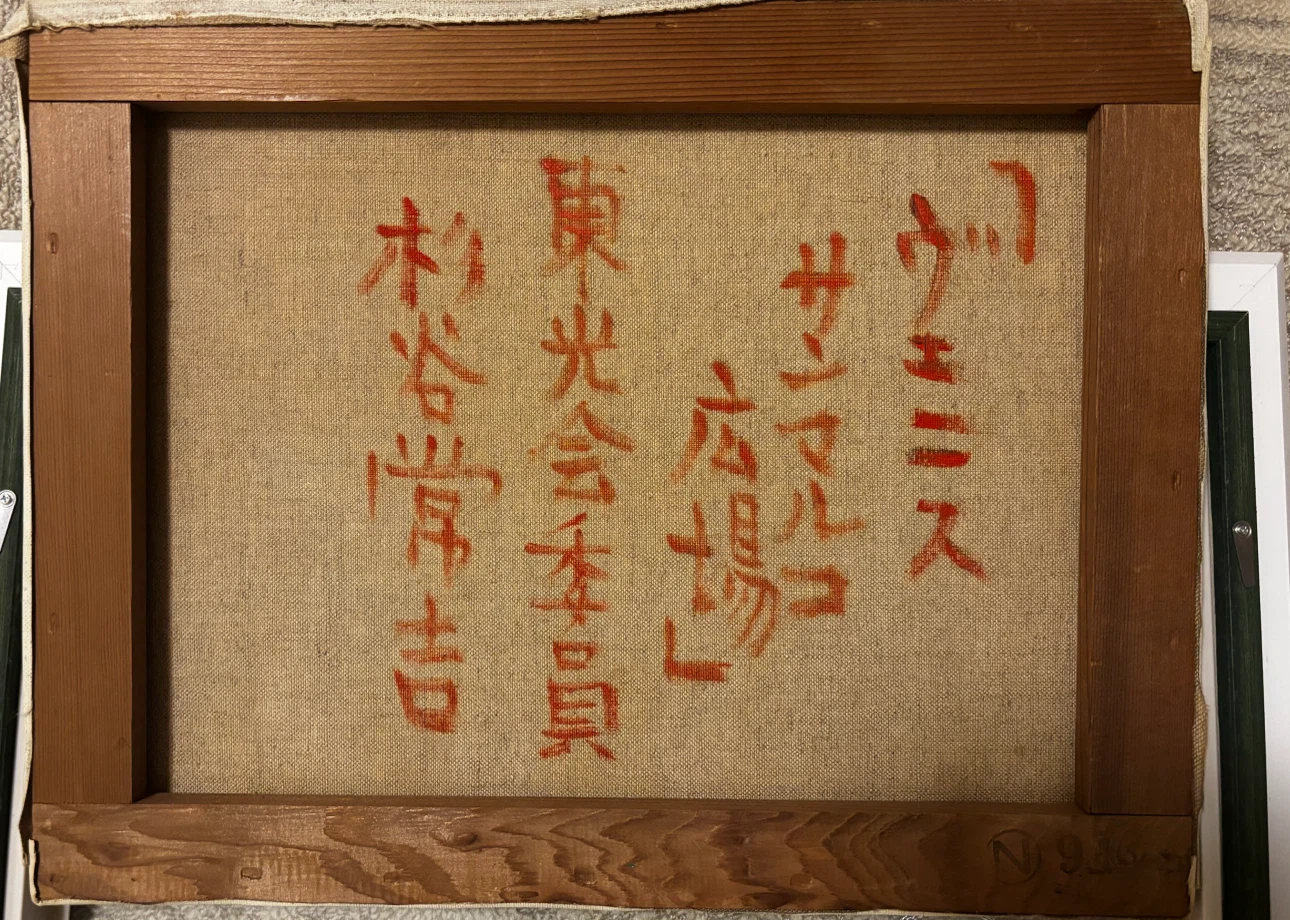 「ヴェニス
サンマルコ
広場」
東光会委員
杉谷常吉